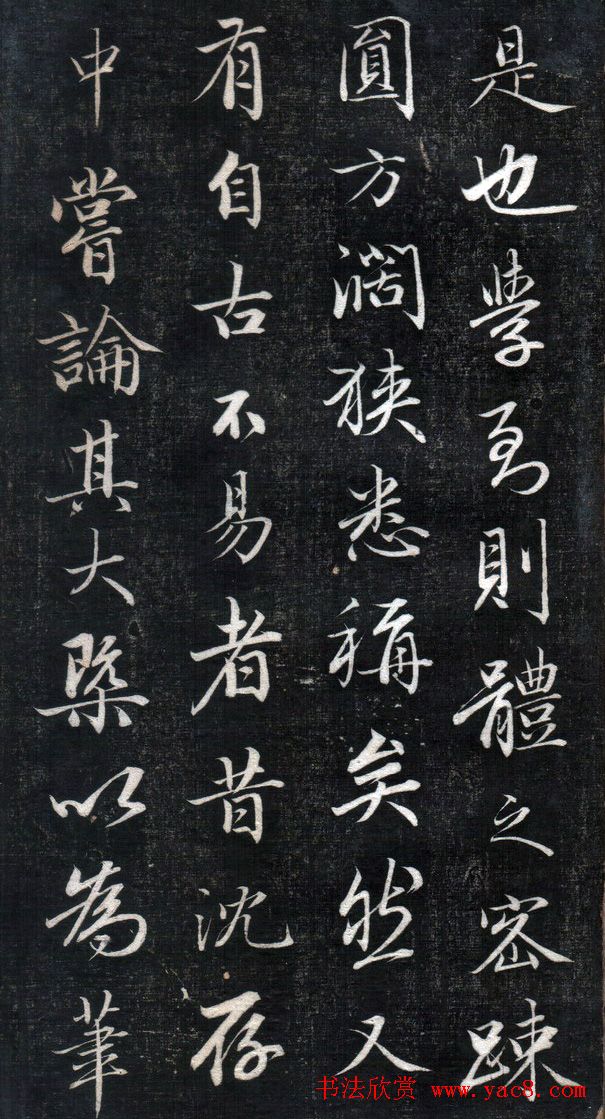 是也學至則體之密踈
圓方濶狹悉稱矣然又
有自古不易者昔沈存
中嘗論其大槩以為筆
书法欣赏 www.yac8.com